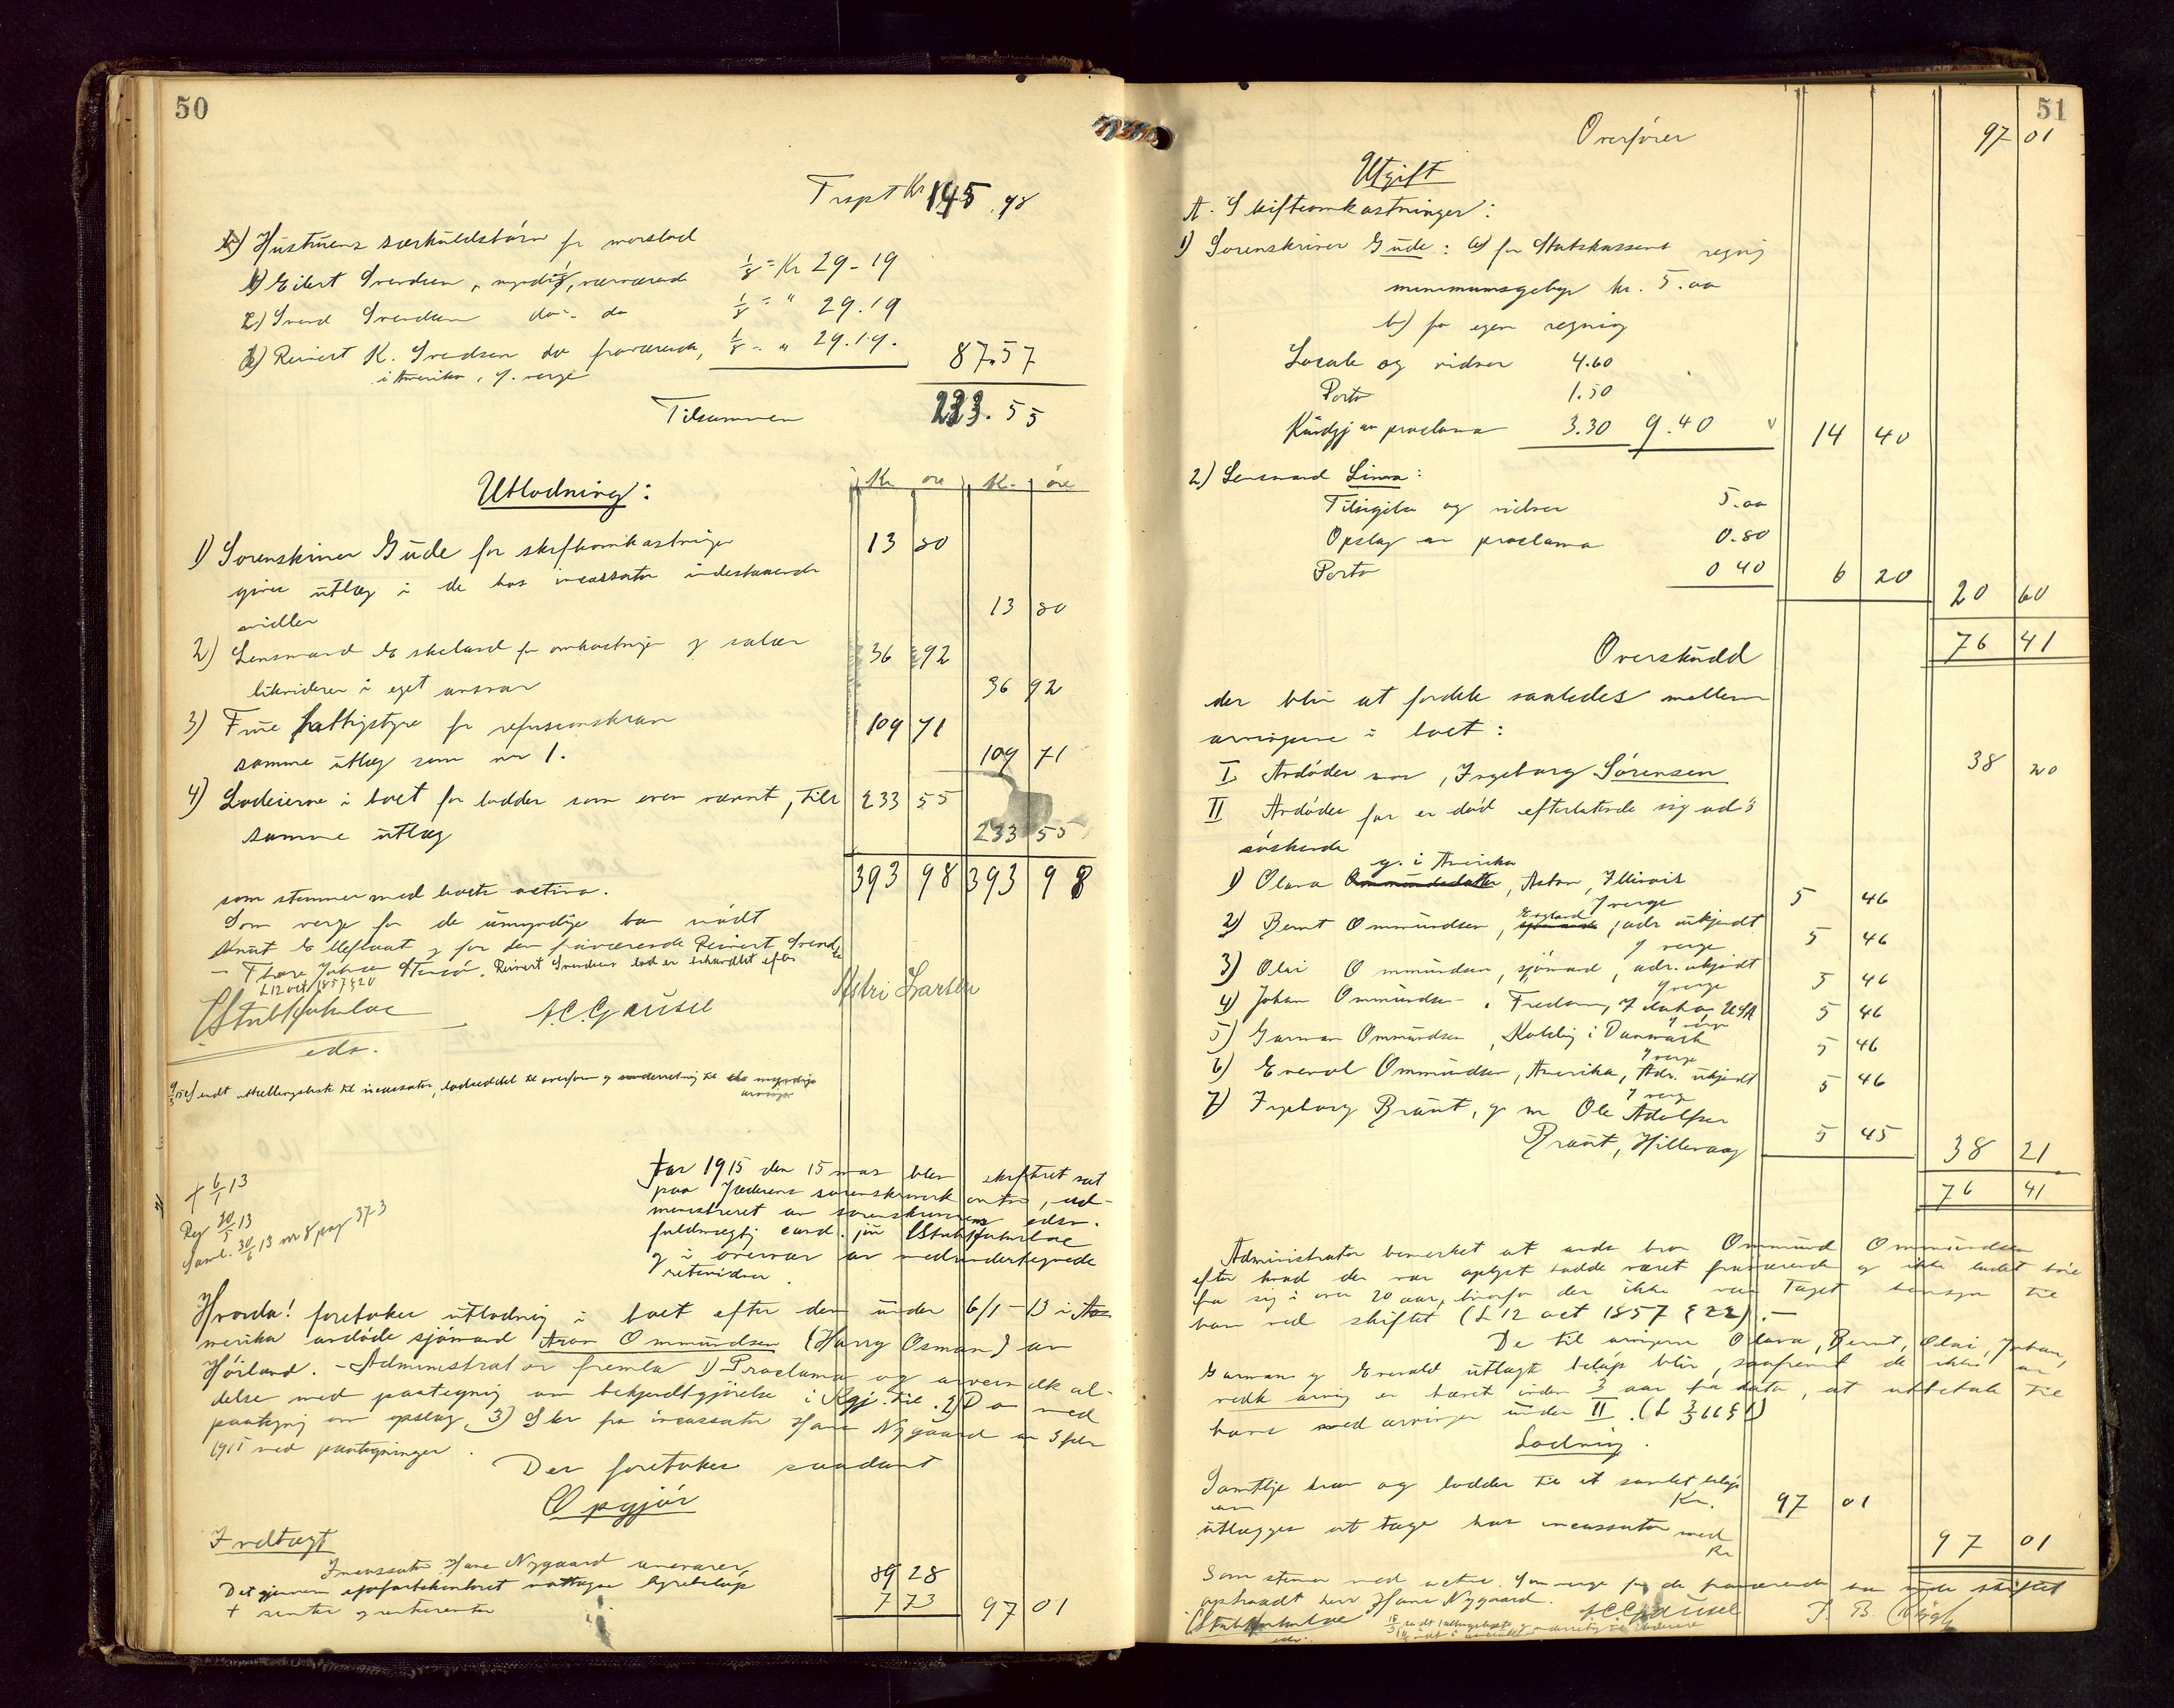 50
Trspt Kr 145.98
b) Hustruens særkuldsbørn for morslod
1) Eilert Svendsen, myndig, nærværende 1/8 = Kr 29-19
2) Svend Svendsen do - do 1/8 = " 29.19
3) Reinert K. Svendsen do fraværende, 1/8 - " 29.19. 87.57
i Amerika, f. verge
Tilsammen 233.55
Utlodning:
Kr øre Kr. øre
1) Sorenskriver Gude for skifteomkostninger 13 80
gives utlæg i de hos incassator indestaaende
midler 13 80
2) Lensmand Eskeland for omkostninger og salær 36 92
likviderer i eget ansvar 36 92
3) Fattigstyre for refusionskrav 109 71
samme utlæg som nr 1. 109 71
4) Lodeierne i boet for lodder som oven nævnt, tils 233 55
samme utlæg 233 55
393 98 393 98
som stemmer med boets activa.
Som verge for de umyndige har mødt
Knut og for den fraværende Reinert Svendsen
Reinert Svendsens lod er behandlet efter
L 12 oct 1857 § 20
A.C. Gausel Astri Larsen
eds.
9/3 15 sendt utdelingsliste til incassator, lodseddel til overform og underretning til de myndige
arvinger
Aar 1915 den 15 mars blev skifteret sat
paa Jæderens sorenskriverkontor, ad-
ministreret av sorenskriverens edsv.
fuldmægtig cand. jur.
og i overvær av medundertegnede
retsvidner.
+ 6/1 13
Reg 20/5 13
Saml. 30/6 13 nr 8 pag 373
Hvorda! foretokes utlodning i boet efter den under 6/1-13 i A-
merika avdøde sjømand Aron Ommundsen (Harry Osman) av
Hörland. - Administrator fremla 1) Proclama og arveindkal-
delse med paategning om bekjendtgjörelse i Kgj. tid. 2) Do med
paategning om opslag. 3) Skr fra incassator Hans Nygaard av 3 febr
1915 med paategninger.
Der foretokes saadant
Opgjör
Indtægt
Incassator Hans Nygaard ansvarer,
Det gjennem sjøfartskontoret mottagne hyrebeløp 89 28
+ renter og renterenter 7 73 97 01
51
Overføres 97 01
Utgift
A. Skifteomkostninger:
1) Sorenskriver Gude: a) for Statskassens regning
minimumsgebyr kr. 5.00
b) for egen regning
Locale og vidner 4.60
Porto 1.50
Kundgj av proclama 3.30 9.40 14 40
2) Lensmand Lima:
Tilsigelse og vidner 5.00
Opslag av proclama 0.80
Porto 0 40 6 20 20 60
Overskudd 76 41
der blir at fordele saaledes mellem
arvingene i boet:
I Avdødes mor, Ingeborg Sørensen 38 20
II Avdødes far er død efterlatende sig avd's
søskende
g. i Amerika
1) Olava Ommundsdatter, Aston, Illinois 5 46
f verge
2) Bernt Ommundsen, England, adr ukjendt 5 46
f verge
3) Olai Ommundsen, sjömand, adr. ukjendt 5 46
f verge
4) Johan Ommundsen, Fredom, Idaho, USA 5 46
5) Garman Ommundsen, Kolding i Danmark 5 46
f verge
6) Enevol Ommundsen, Amerika, Adr. ukjendt 5 46
f verge
7) Ingeborg Braut, g m Ole Adolfsen
Braut, Hillevaag 5 45 38 21
76 41
Administrator bemerket at avds bror Ommund Ommundsen
efter hvad der var oplyst hadde været fraværende og ikke latet höre
fra sig i over 20 aar, hvorfor der ikke var taget hensyn til
ham ved skiftet (L 12 oct 1857 § 22). -
De til arvingene Olava, Bernt, Olai, Johan,
Garman og Enevald utlagte beløp blir, saafremt de ikke av
vedk arving er hævet inden 3 aar fra dato, at utbetale til
hans medarvinger under II. (L
Lodning.
Samtlige krav og lodder til et samlet beløp
av Kr. 97 01
utlægges at tage hos incassator med
Kr 97 01
Som stemmer med activa. Som verge for de fraværende har under skiftet
optraadt herr Hans Nygaard.
A.C. Gausel
eds.